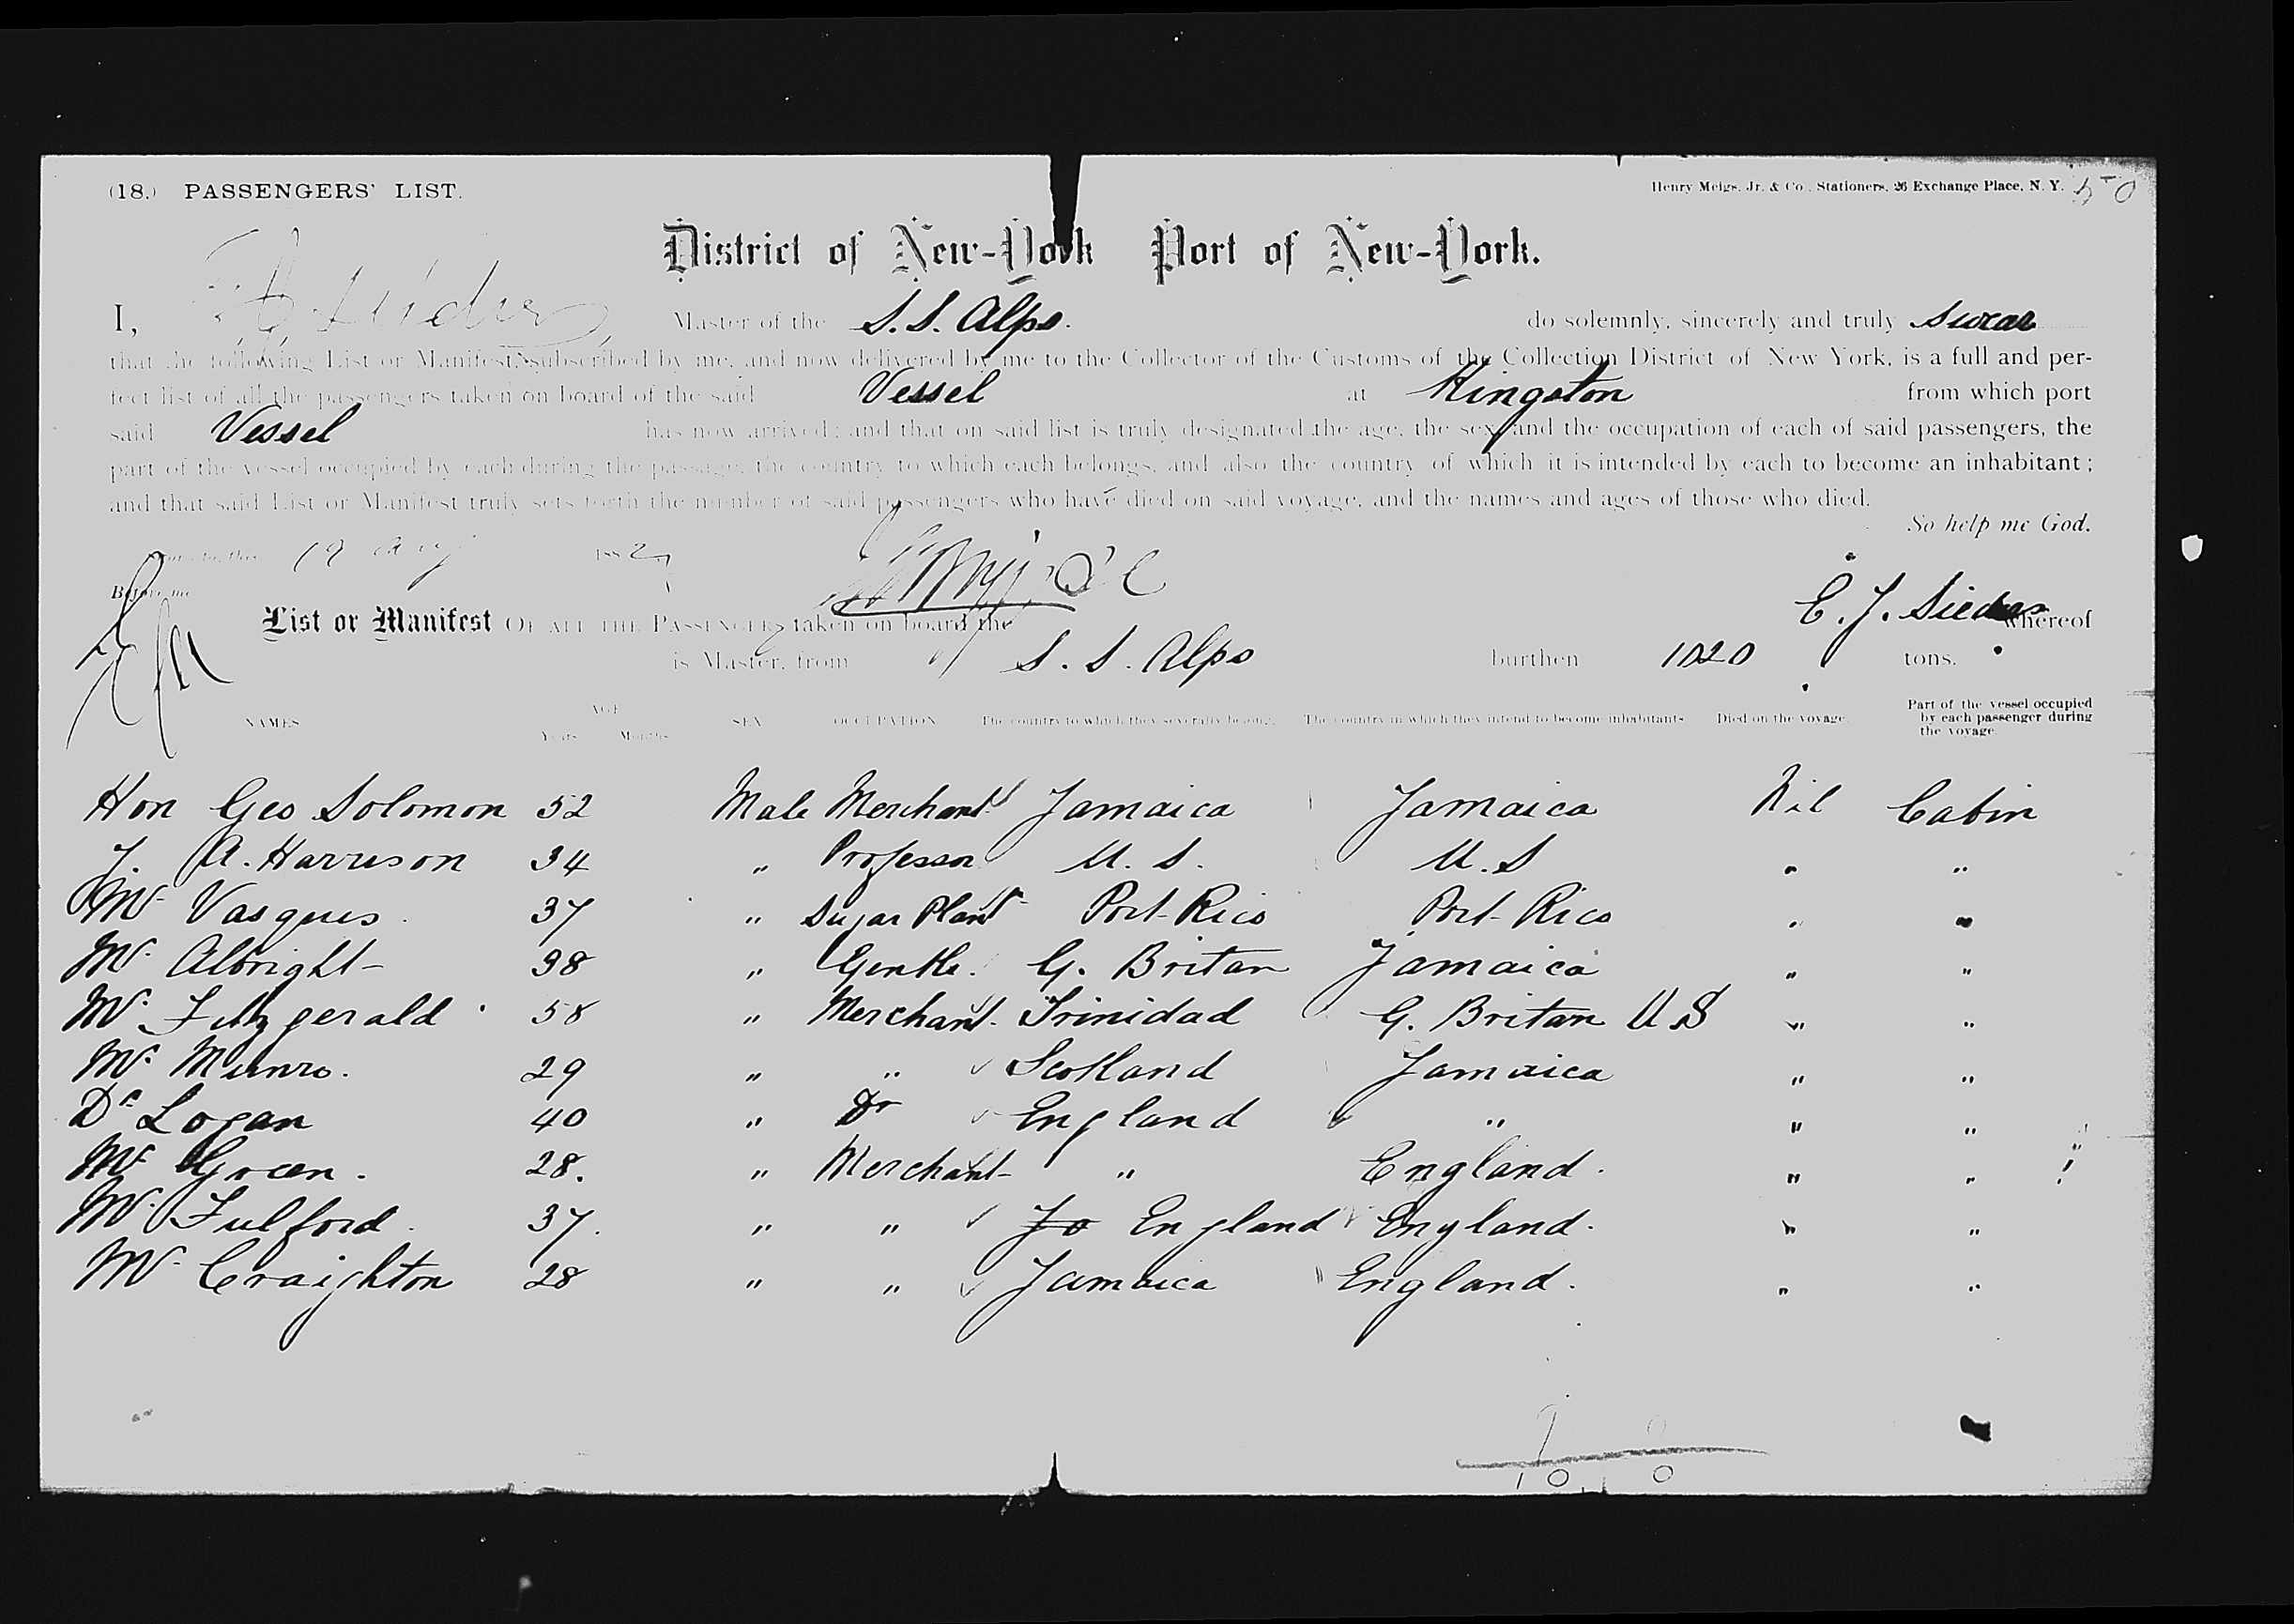 (18.) PASSENGERS' LIST.
Henry Meigs, Jr. & Co., Stationers, 26 Exchange Place, N. Y. 50
District of New-York Port of New-York.
I, Master of the S. S. Alps. do solemnly, sincerely and truly swear
that the following List or Manifest, subscribed by me, and now delivered by me to the Collector of the Customs of the Collection District of New York, is a full and per-
fect list of all the passengers taken on board of the said Vessel at Kingston from which port
said Vessel has now arrived; and that on said list is truly designated the age, the sex, and the occupation of each of said passengers, the
part of the vessel occupied by each during the passage, the country to which each belongs, and also the country of which it is intended by each to become an inhabitant;
and that said List or Manifest truly sets forth the number of said passengers who have died on said voyage, and the names and ages of those who died.
So help me God.
Sworn to, this 19 Aug 1882
Before me
List or Manifest OF ALL THE PASSENGERS taken on board the E. J. whereof
is Master, from S. S. Alps burthen 1020 tons.
NAMES AGE Years Months SEX OCCUPATION The country to which they severally belong. The country in which they intend to become inhabitants Died on the voyage. Part of the vessel occupied by each passenger during the voyage.
Hon Geo Solomon 52 Male Merchant Jamaica Jamaica Nil Cabin
J. A. Harrison 34 " Professor U. S. U. S " "
Mr. Vasques 37 " Sugar Plant Port-Rico Port-Rico " "
Mr. Albright 38 " Gentle. G. Britan Jamaica " "
Mr. Fitzgerald 58 " Merchant. Trinidad G. Britan U S " "
Mr. Munro. 29 " " Scotland Jamaica " "
Dr. Logan 40 " Dr England " " "
Mr Green. 28. " Merchant " England. " "
Mr. Fulford. 37. " " Ja England England. " "
Mr. Craighton 28 " " Jamaica England. " "
10 0